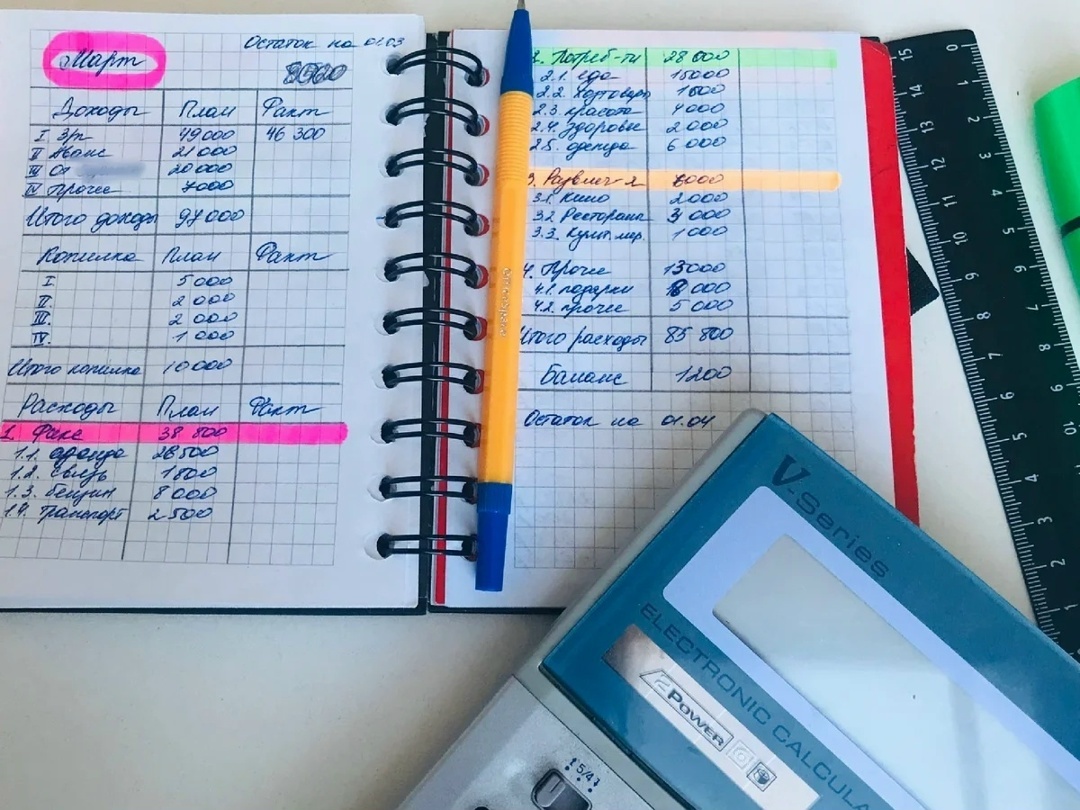 Март
Остаток на 01.03
Доходы План Факт
I З/п 49000 46 300
II Аванс 21 000
III От 20 000
IV Прочее 7000
Итого доходы 97 000
Копилка План Факт
I. 5 000
II. 2 000
III. 2 000
IV. 1 000
Итого копилка 10 000
Расходы План Факт
1. Фикс 38 800
1.1. аренда
1.2. связь
1.3. бензин 8 000
1.4. транспорт 2 500
2. Потреб-ти 28 000
2.1. еда 15000
2.2. хозтовары 1000
2.3 красота 4 000
2.4. Здоровье 2 000
2.5. одежда 6 000
3. Развлеч-я 6000
3.1. Кино 2000
3.2 Рестораны 3 000
3.3. Культ.мер. 1 000
4. Прочее 13000
4.1. подарки 8 000
4.2. прочее 5 000
Итого расходы 85 800
Баланс 1200
Остаток на 01.04
V-Series
ELECTRONIC CALCULA
2POWER
5/4
15 14 13 12 11 10 9 8 7 6 5 4 3 2 1 0
0 1 2 3 4 5 6
10 9 8 7 6 5 4 3 2 1